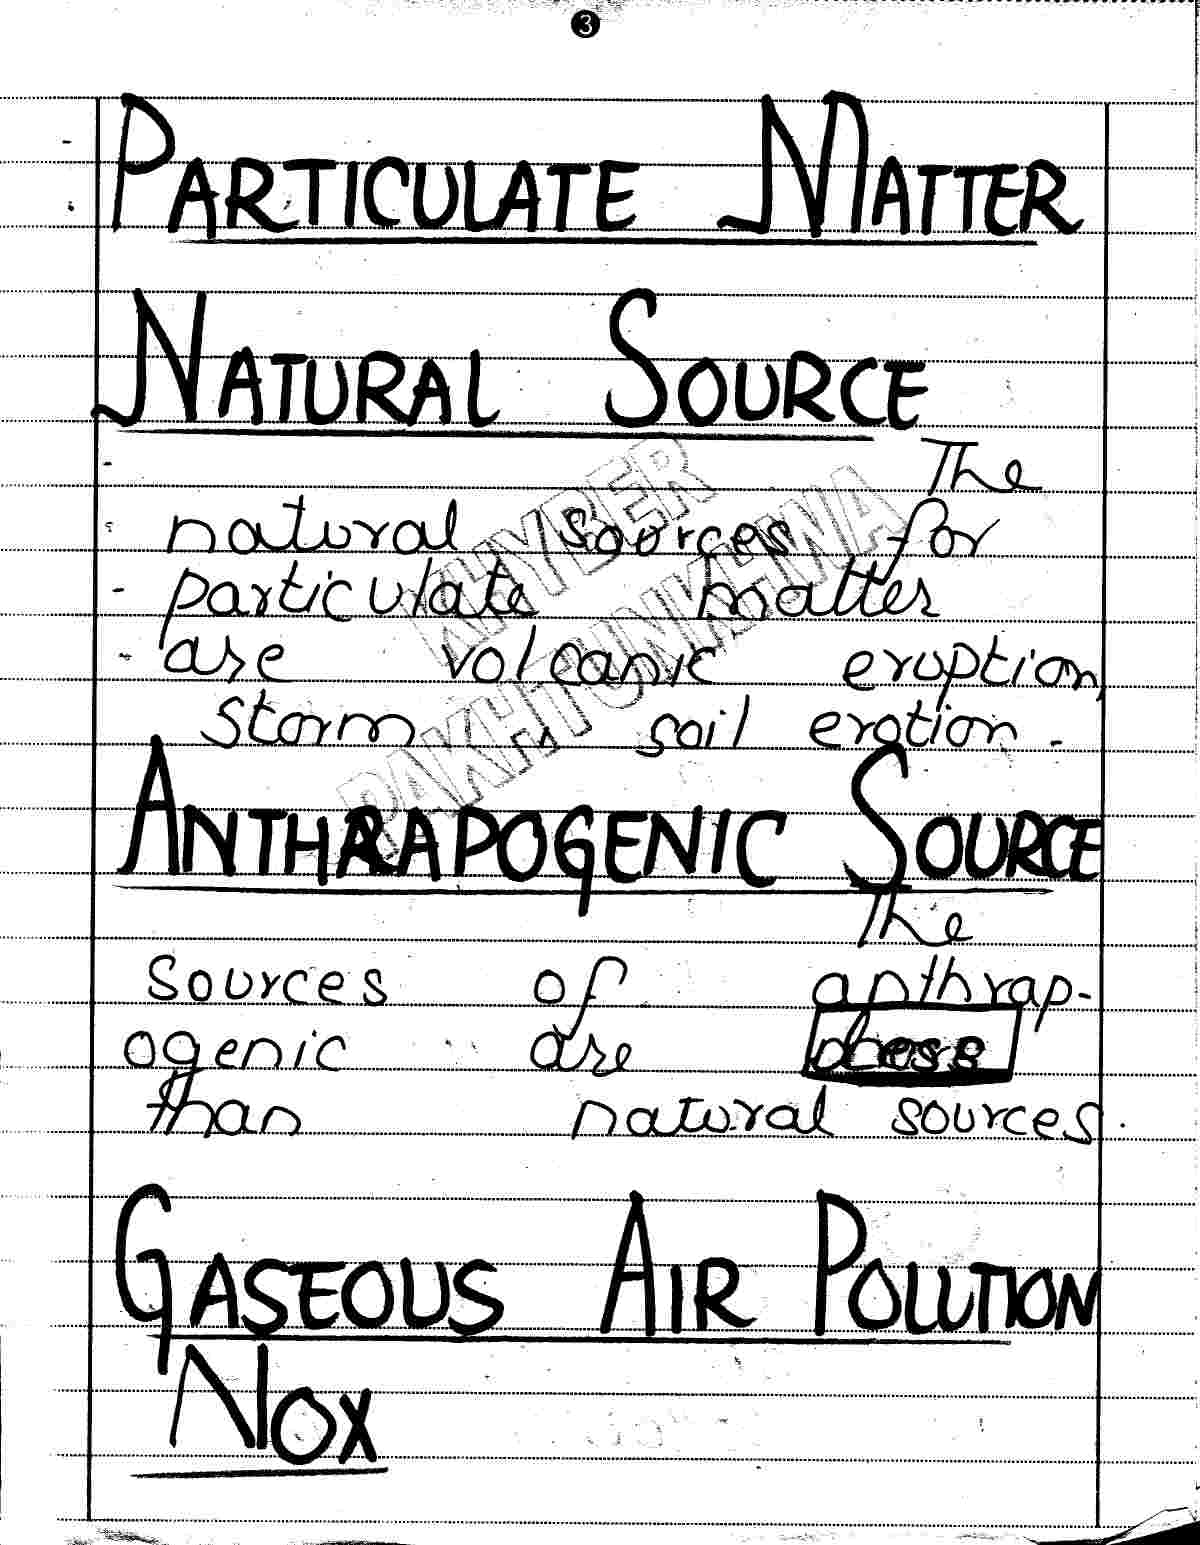 3
PARTICULATE MATTER
NATURAL SOURCE
The
natural sources for
particulate matter
are volcanic eruption
storm, soil erotion.
KHYBER
PAKHTUNKHWA
ANTHRAPOGENIC SOURCE
The
sources of anthrap-
ogenic are
than natural sources.
GASEOUS AIR POLLUTION
NOX